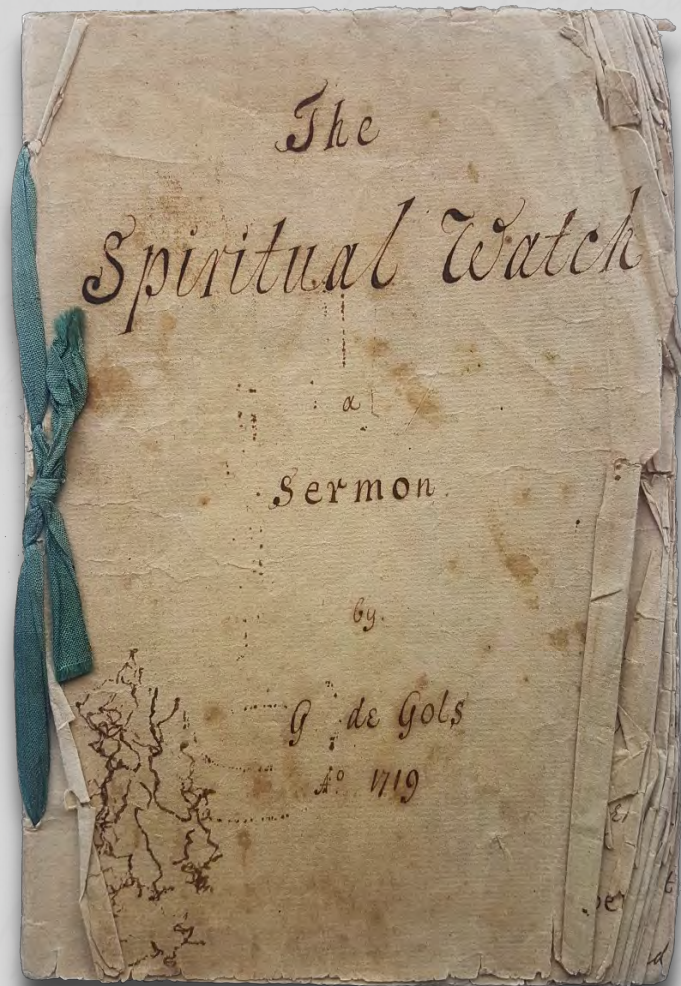 The
Spiritual Watch
a
Sermon.
by.
G de Gols
Aº 1719